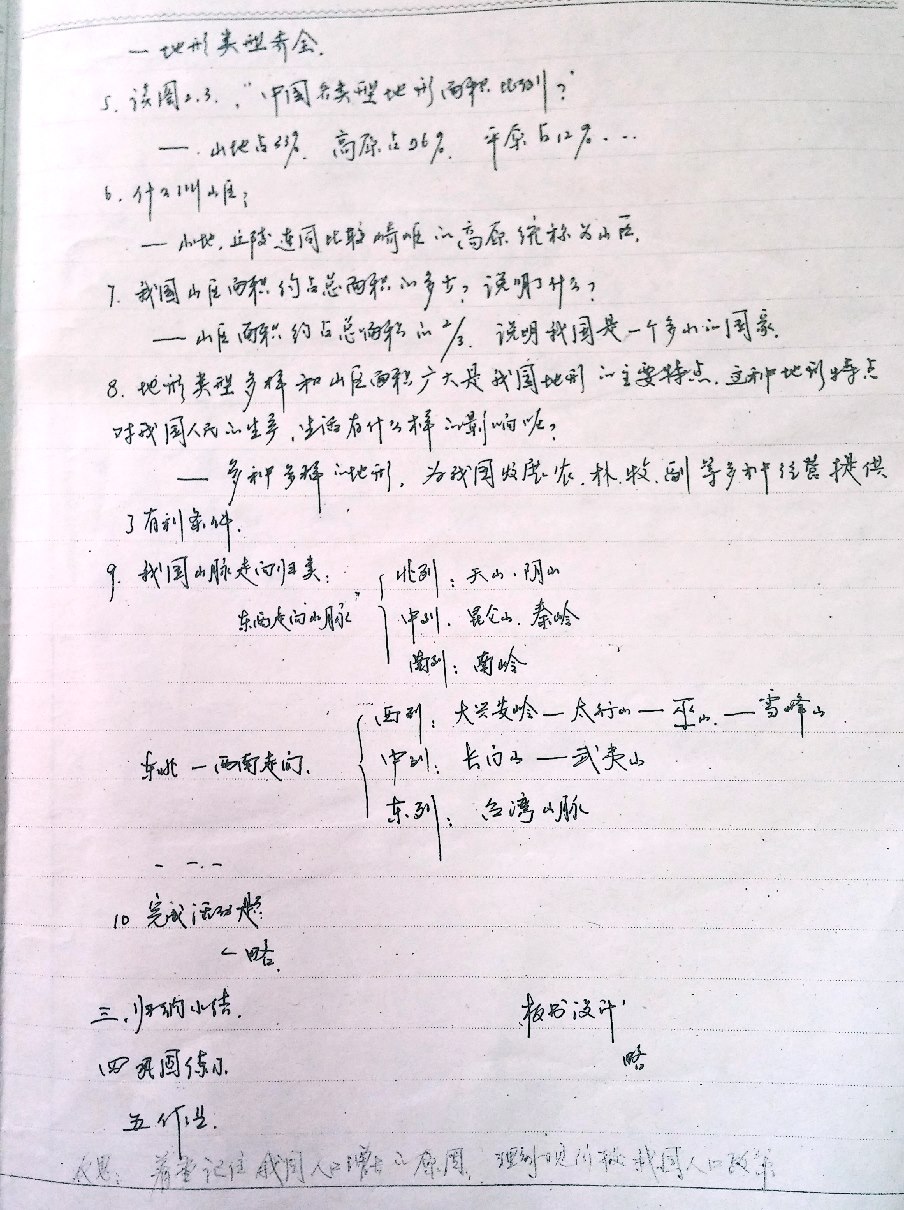 — 地形类型齐全.
5. 读图2.3. "中国各类型地形面积比例"?
— 山地占33%. 高原占26%. 平原占12%. ...
6. 什么叫山区?
— 山地, 丘陵连同比较崎岖的高原统称为山区.
7. 我国山区面积约占总面积的多少? 说明了什么?
— 山区面积约占总面积的2/3. 说明我国是一个多山的国家.
8. 地形类型多样和山区面积广大是我国地形的主要特点. 这种地形特点
对我国人民的生产, 生活有什么样的影响呢?
— 多种多样的地形, 为我国发展农. 林. 牧. 副等多种经营提供
了有利条件.
9. 我国山脉走向归类:
东西走向山脉 北列: 天山. 阴山
中列. 昆仑山. 秦岭
南列: 南岭
东北 — 西南走向. 西列: 大兴安岭 — 太行山 — 巫山. — 雪峰山
中列: 长白山 — 武夷山
东列: 台湾山脉
— —.—
10 完成活动题
— 略.
三. 归纳小结. 板书设计
四 巩固练习. 略
五 作业.
反思: 着重记住我国人口增长的原因, 我国人口政策